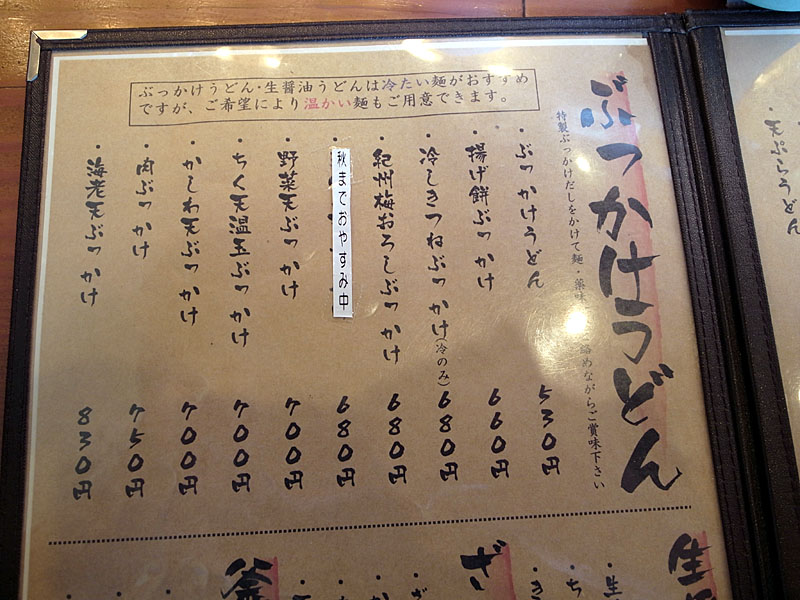 ぶっかけうどん・生醤油うどんは冷たい麺がおすすめ
ですが、ご希望により温かい麺もご用意できます。
ぶっかけうどん
特製ぶっかけだしをかけて麺・薬味
絡めながらご賞味下さい
・ぶっかけうどん 530円
・揚げ餅ぶっかけ 660円
・冷しきつねぶっかけ(冷のみ) 680円
・紀州梅おろしぶっかけ 680円
秋までおやすみ中 680円
・野菜天ぶっかけ 700円
・ちく天温玉ぶっかけ 700円
・かしわ天ぶっかけ 700円
・肉ぶっかけ 750円
・海老天ぶっかけ 830円
・天ぷらうどん
生
ざ
釜